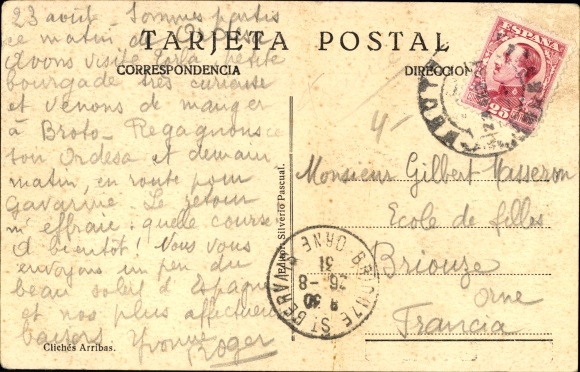 TARJETA POSTAL
CORRESPONDENCIA
DIRECCION
23 août - Sommes partis
ce matin de
Avons visité petite
bourgade très curieuse
et venons de manger
à Broto. Regagnons ce
soir Ordesa et demain
matin, en route pour
Gavarnie. Le retour
m'effraie: quelle course
A bientôt! Nous vous
envoyons un peu du
beau soleil d'Espagne
et nos plus affectueux
baisers Yvonne Roger
Clichés Arribas.
Edición Silverio Pascual.
ESPAÑA
25
Monsieur Gilbert Masseron
Ecole de filles
Briouze
Orne
Francia
BRIOUZE ST GERVAIS
ORNE
30
26-8
31